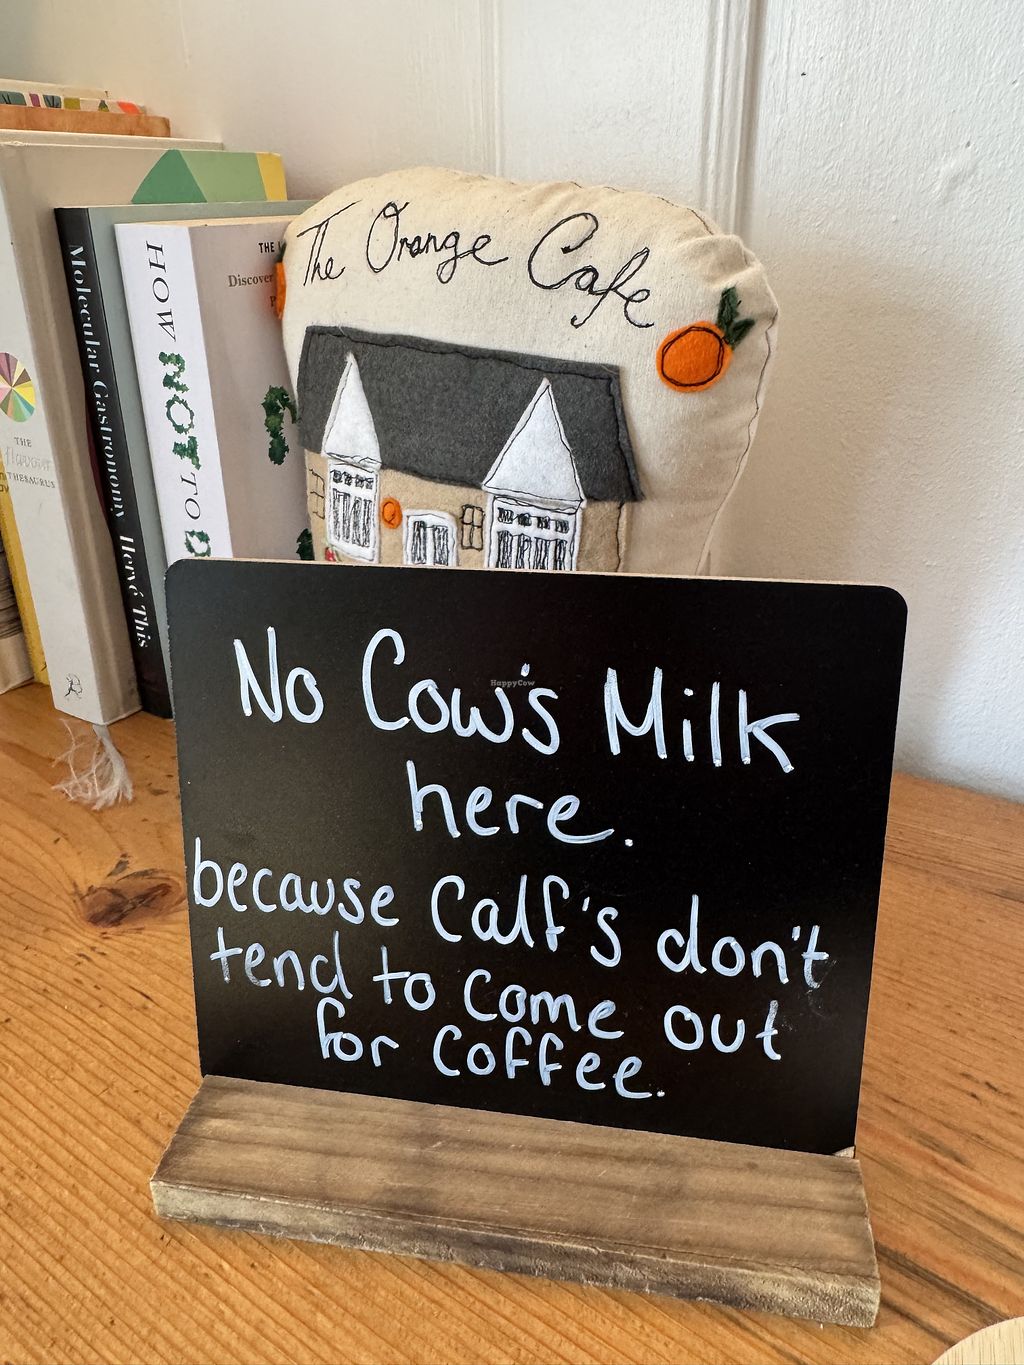 The Orange Cafe
THE
flavour
THESAURUS
Molecular Gastronomy Hervé This
HOW NOT TO D
Discover
No Cow's Milk
HappyCow
here.
because Calf's don't
tend to come out
for coffee.